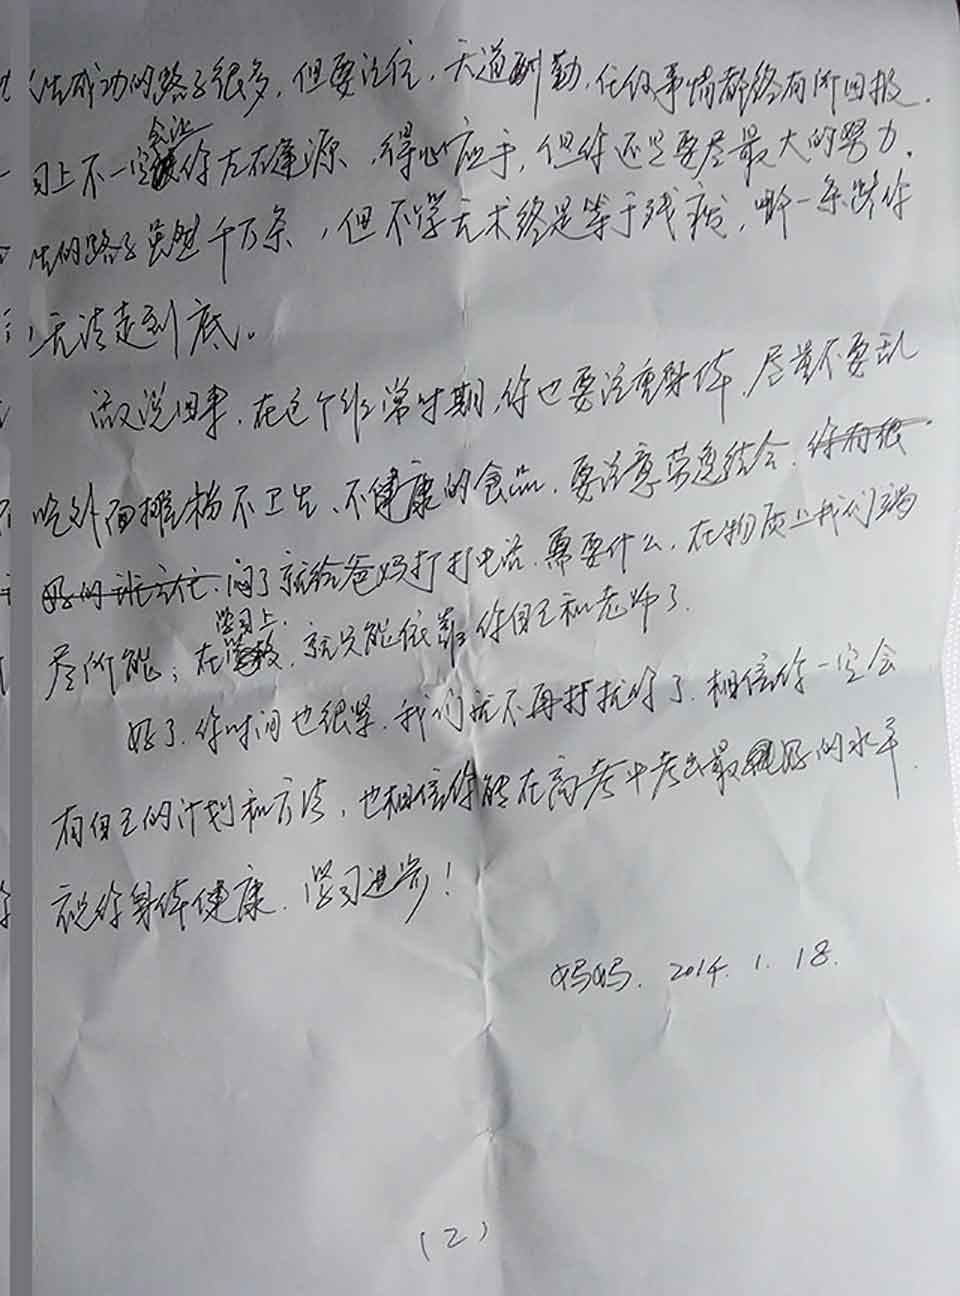 生成功的路子很多,但要记住,天道酬勤,任何事情都终有所回报.
习上不一定会让你左右逢源,得心应手,但你还是要尽最大的努力.
生的路子虽然千万条,但不学无术终是等于残疾,哪一条路你
无法走到底。
话又说回来,在这个非常时期,你也要注重身体,尽量不要乱
吃外面摊档不卫生、不健康的食品,要注意劳逸结合.你有很
好的班主任.闷了就给爸妈打打电话.需要什么,在物质上我们竭
尽所能;在学习上,就只能依靠你自己和老师了.
好了.你时间也很紧.我们就不再打扰你了.相信你一定会
有自己的计划和方法,也相信你能在高考中考出最好的水平.
祝你身体健康.学习进步!
妈妈.2014.1.18.
(2)